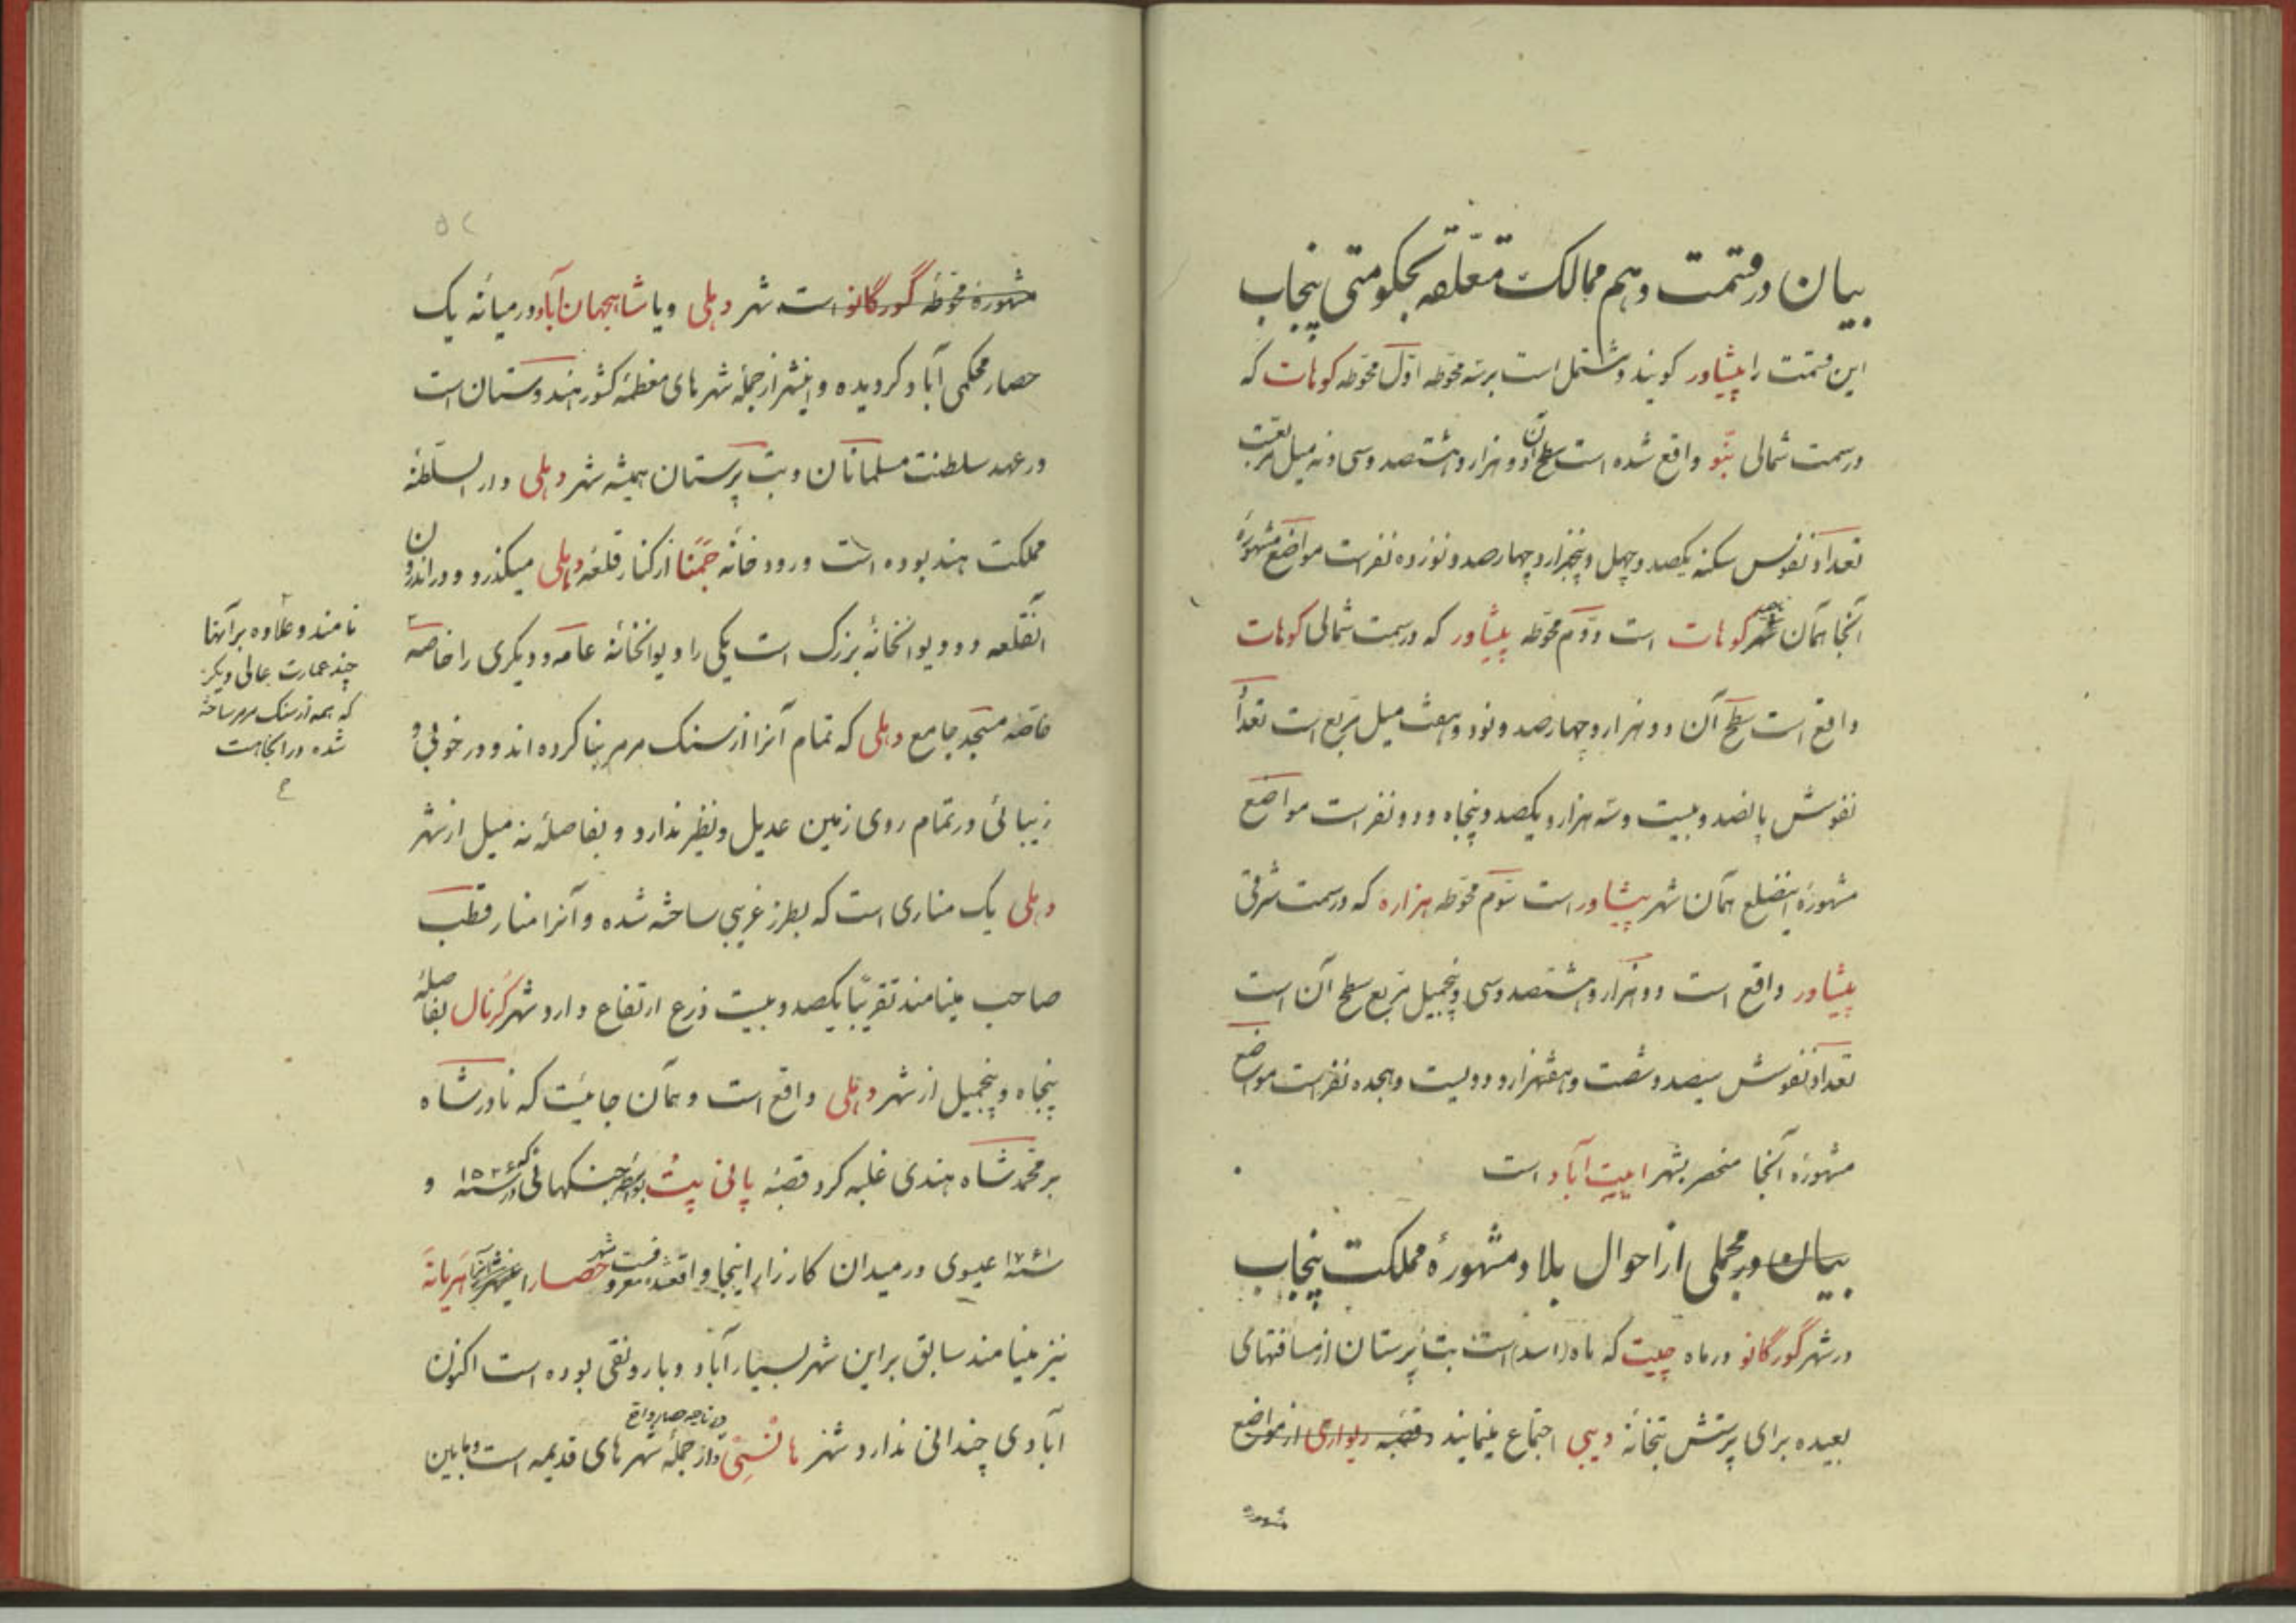 بیان در قسمت دهم ممالک متعلقه بحکومتی پنجاب
این قسمت را پیشاور گویند و مشتمل است بر سه محوطه اوّل محوطه کوهات که
در سمت شمالی بنّو واقع شده است سطح آن دو هزار و هشتصد و سی و نه میل مربعست
تعداد نفوس سکنه یکصد و چهل و پنجهزار و چهارصد و نوزده نفر است مواضع مشهورهٔ
آنجا همان شهر کوهات است دوّم محوطه پیشاور که در سمت شمالی کوهات
واقع است سطح آن دو هزار و چهارصد و نود و هفت میل مربع است تعداد
نفوسش پانصد و بیست و سه هزار و یکصد و پنجاه و دو نفر است مواضع
مشهورهٔ اینضلع همان شهر پیشاور است سوّم محوطه هزاره که در سمت شرقی
پیشاور واقع است دو هزار و هشتصد و سی و پنجمیل مربع سطح آن است
تعداد نفوسش سیصد و شصت و هفتهزار و دویست و هجده نفر است مواضع
مشهورهٔ آنجا منحصر بشهر ایبت آباد است
بیان در مجملی از احوال بلاد مشهورهٔ مملکت پنجاب
در شهر گورگانو در ماه چیت که ماه (اسد) است بت پرستان از مسافتهای
بعیده برای پرستش بتخانهٔ دیبی اجتماع مینمایند و قصبه ریواری از مواضع
مشهورهٔ
۵۲
مشهورهٔ محوطهٔ گورگانو است شهر دهلی و یا شاهجهان آباد در میانهٔ یک
حصار محکمی آباد گردیده و اینشهر از جملهٔ شهرهای معظمهٔ کشور هندوستان است
در عهد سلطنت مسلمانان و بت پرستان همیشه شهر دهلی دار السلطنهٔ
مملکت هند بوده است و رودخانهٔ جمنا از کنار قلعهٔ دهلی میگذرد و در اندرون
آنقلعه دو دیوانخانهٔ بزرک است یکی را دیوانخانهٔ عامه و دیگری را خاصه
نامند و علاوه بر آنها
چند عمارت عالی دیگر
که همه از سنک مرمر ساخته
شده در آنجاهست
خاصّه مسجد جامع دهلی که تمام آنرا از سنک مرمر بنا کرده اند و در خوبی و
زیبائی در تمام روی زمین عدیل و نظیر ندارد و بفاصلهٔ نه میل از شهر
دهلی یک مناری است که بطرز غریبی ساخته شده و آنرا منار قطب
صاحب مینامند تقریبًا یکصد و بیست ذرع ارتفاع دارد شهر کرنال بفاصلهٔ
پنجاه و پنجمیل از شهر دهلی واقع است و همان جائیست که نادرشاه
بر محمدشاه هندی غلبه کرد قصبهٔ پانی پت بواسطهٔ جنگهائی که در سنه ۱۵۲۶ و
سنه ۱۷۶۱ عیسوی در میدان کارزار اینجا واقعشده معروفست شهر حصار را هریانه
نیز مینامند سابق بر این شهر بسیار آباد و با رونقی بوده است اکنون
آبادی چندانی ندارد شهر هانسی در ناحیه حصار واقع و از جملهٔ شهرهای قدیمه است و مابین